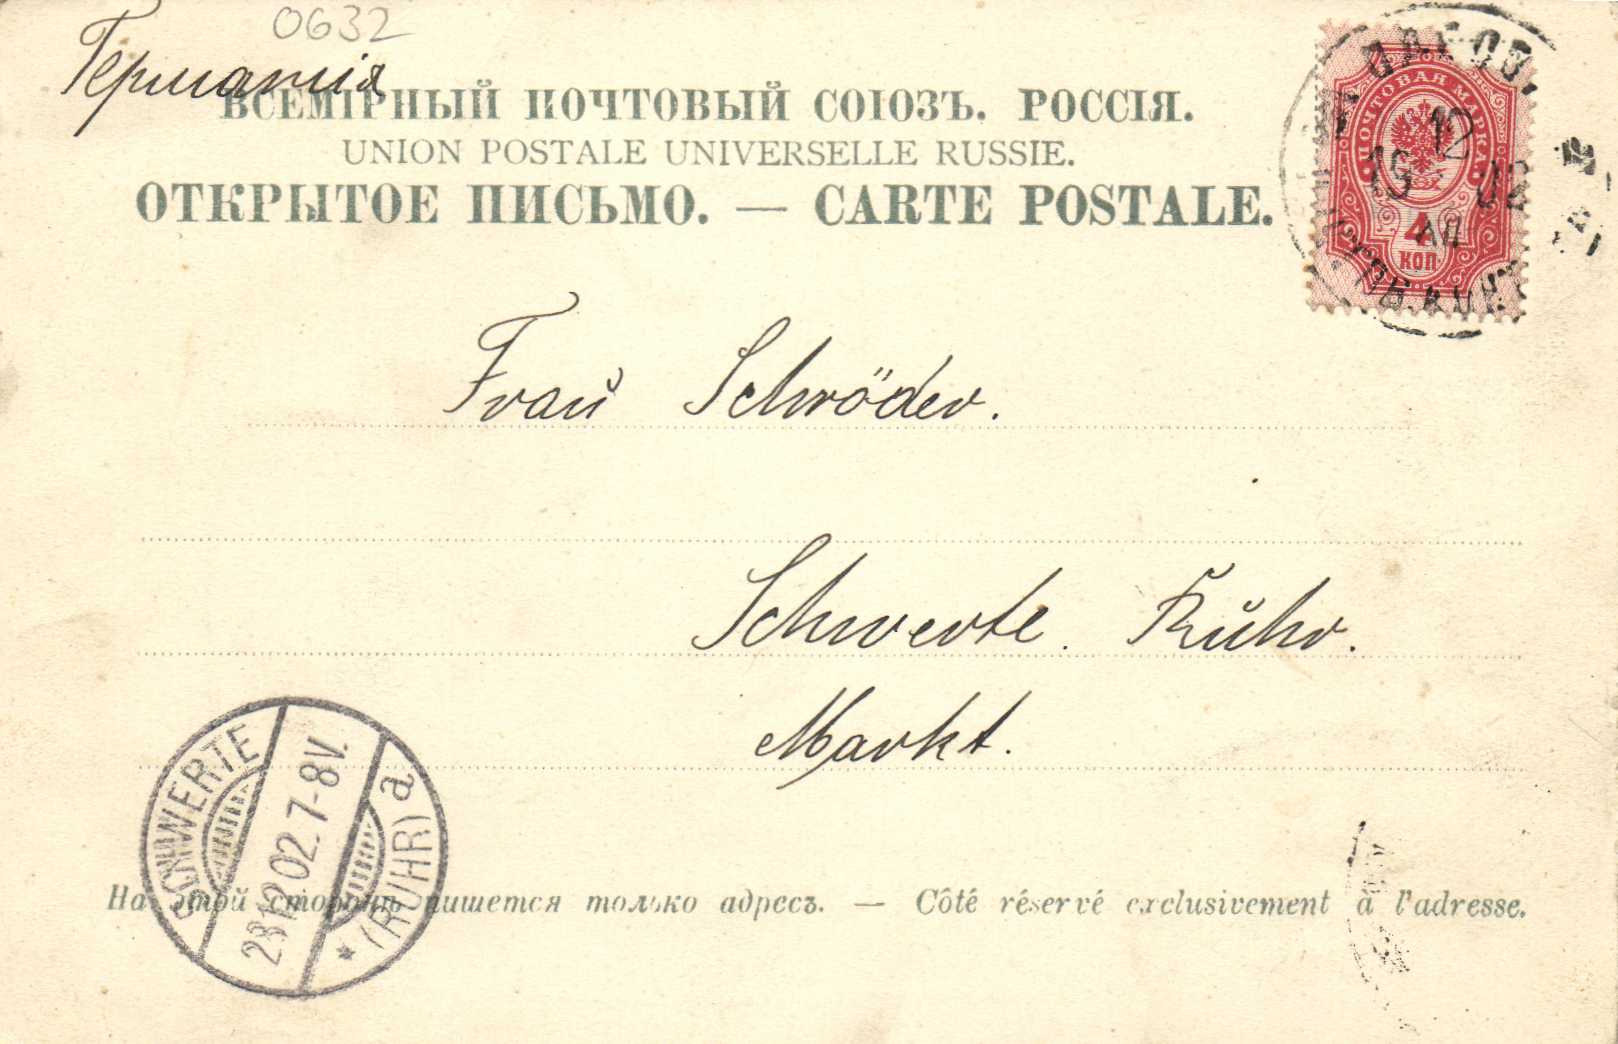 0632
Германія
ВСЕМІРНЫЙ ПОЧТОВЫЙ СОЮЗЪ. РОССІЯ.
UNION POSTALE UNIVERSELLE RUSSIE.
ОТКРЫТОЕ ПИСЬМО. — CARTE POSTALE.
ПОЧТОВАЯ МАРКА
4
КОП
12
19 02
Frau Schröder.
Schwerte. Ruhr.
Markt.
SCHWERTE
23 12 02. 7-8V.
* (RUHR) a
На этой сторонѣ пишется только адресъ. — Côté réservé exclusivement à l'adresse.